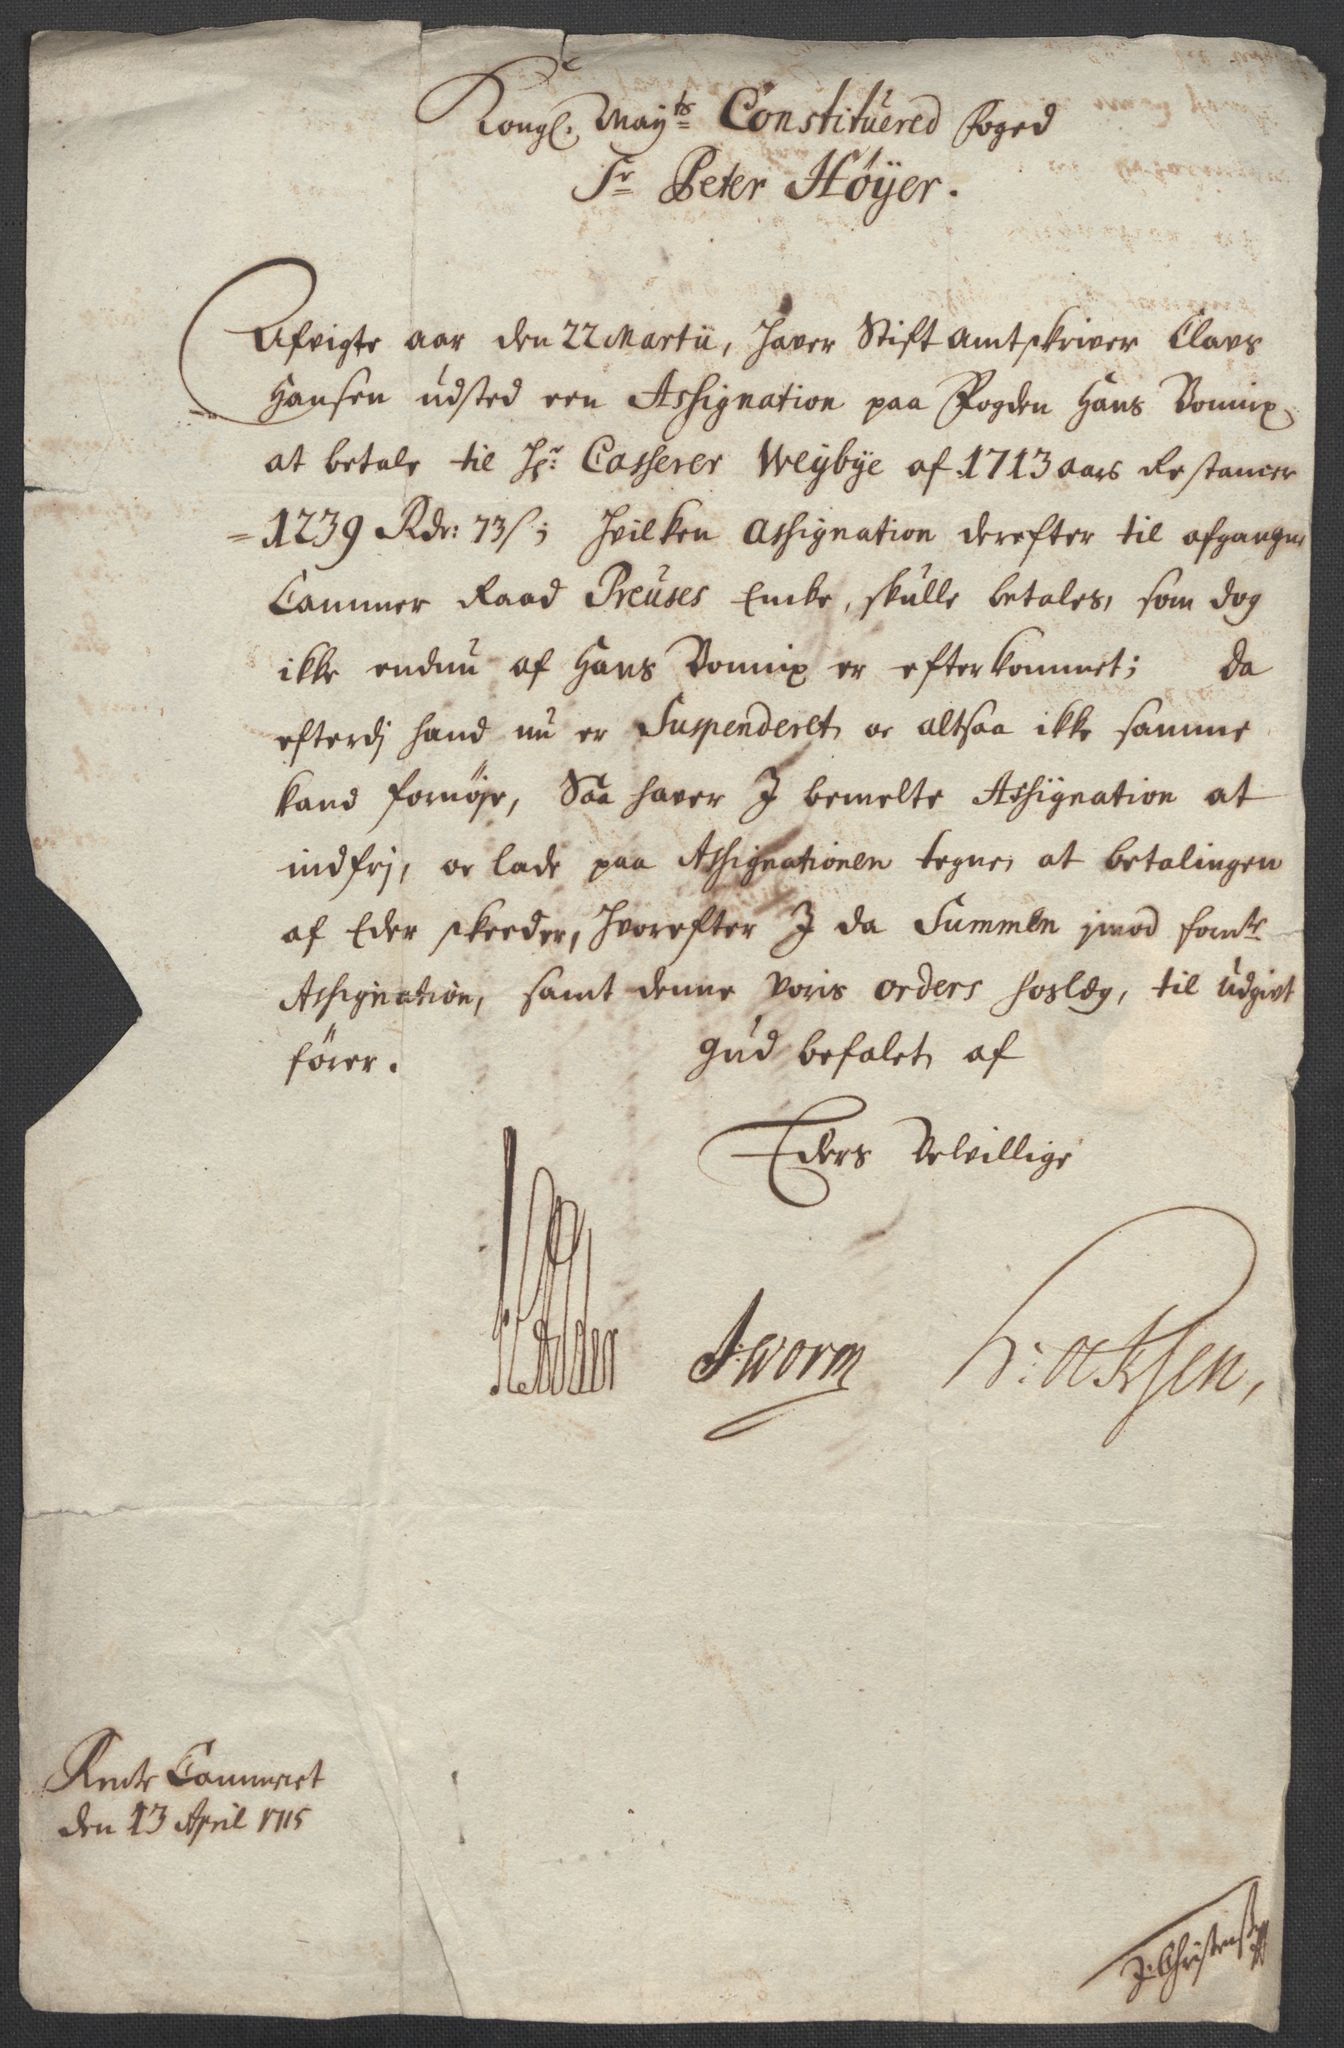 Kongl. May.ts Constituered Foged
Sr Peter Höÿer.
Afvigte aar den 22 Martii, haver Stift amtskriver Clavs
Hansen udsted een Assignation paa Fogden Hans Bonnix
at betale til Hr: Casserer Weÿbÿe af 1713 aars Restancer
1239 Rdr: 73 s; hvilken Assignation derefter til afgangne
Cammer Raad Preuses Encke, skulle betales, som dog
ikke endnu af Hans Bonnix er efterkommet; da
efterdj hand nu er Suspenderet, oc altsaa ikke samme
kand fornöje, Saa haver I bemelte Assignation at
indfrj, oc lade paa Assignationen tegne, at betalingen
af Eder skeeder, hvorefter I da Summen jmod formte
Assignation, samt denne voris orders hoslæg, til Udgivt
förer. Gud befalet, af
Eders Velvillige
J: Worm
Rente Cammeret
den 13 April 1715
J: Christensen